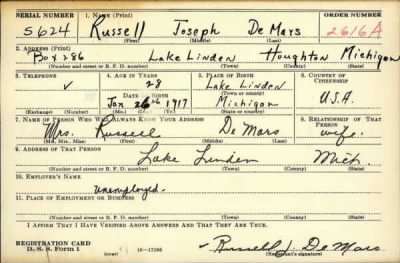 SERIAL NUMBER 1. NAME (Print) ORDER NUMBER
5624 Russell Joseph De Mars 2616A
(First) (Middle) (Last)
2. ADDRESS (Print)
Box 286 Lake Linden Houghton Michigan
(Number and street or R. F. D. number) (Town) (County) (State)
3. TELEPHONE 4. AGE IN YEARS 5. PLACE OF BIRTH 6. COUNTRY OF CITIZENSHIP
Lake Linden
DATE OF BIRTH (Town or county)
Jan 26 1917 Michigan U.S.A.
(Exchange) (Number) (Mo.) (Day) (Yr.) (State or country)
7. NAME OF PERSON WHO WILL ALWAYS KNOW YOUR ADDRESS 8. RELATIONSHIP OF THAT PERSON
Mrs. Russell De Mars wife
(Mr., Mrs., Miss) (First) (Middle) (Last)
9. ADDRESS OF THAT PERSON
Lake Linden Mich.
(Number and street or R. F. D. number) (Town) (County) (State)
10. EMPLOYER'S NAME
Unemployed.
11. PLACE OF EMPLOYMENT OR BUSINESS
(Number and street or R. F. D. number) (Town) (County) (State)
I AFFIRM THAT I HAVE VERIFIED ABOVE ANSWERS AND THAT THEY ARE TRUE.
REGISTRATION CARD
D. S. S. Form 1 (over) 16-17105 Russell J. De Mars
(Registrant's signature)